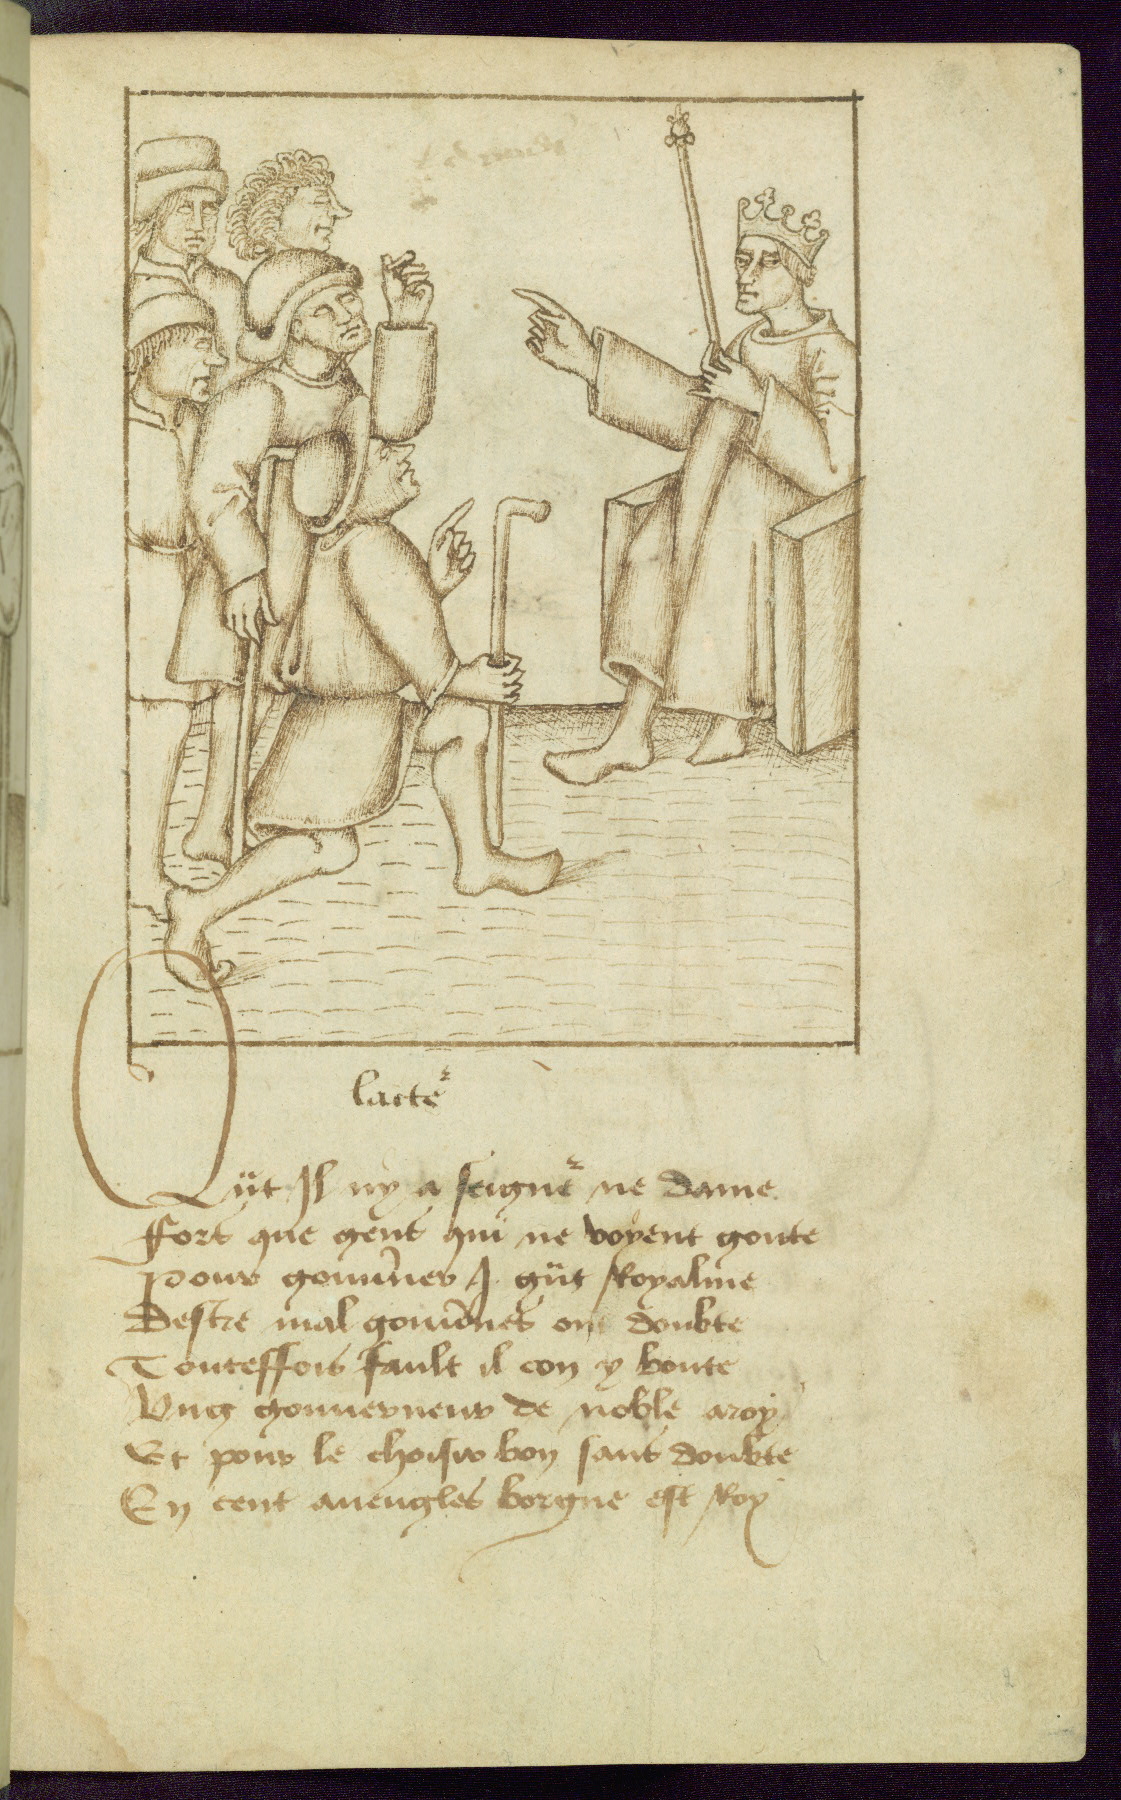 lacteᷣ
Qũt Jl ny a seigneᷣ ne dame
ffors que gens qui ne voyent goute
Pour gouũner J gũt Royalme
Destre mal gouũnes ont doubte
Touteffois fault il con y boute
Vng gouuerneur de noble aroy
Et pour le choisir bon sans doubte
En cent aueugles borgne est Roy